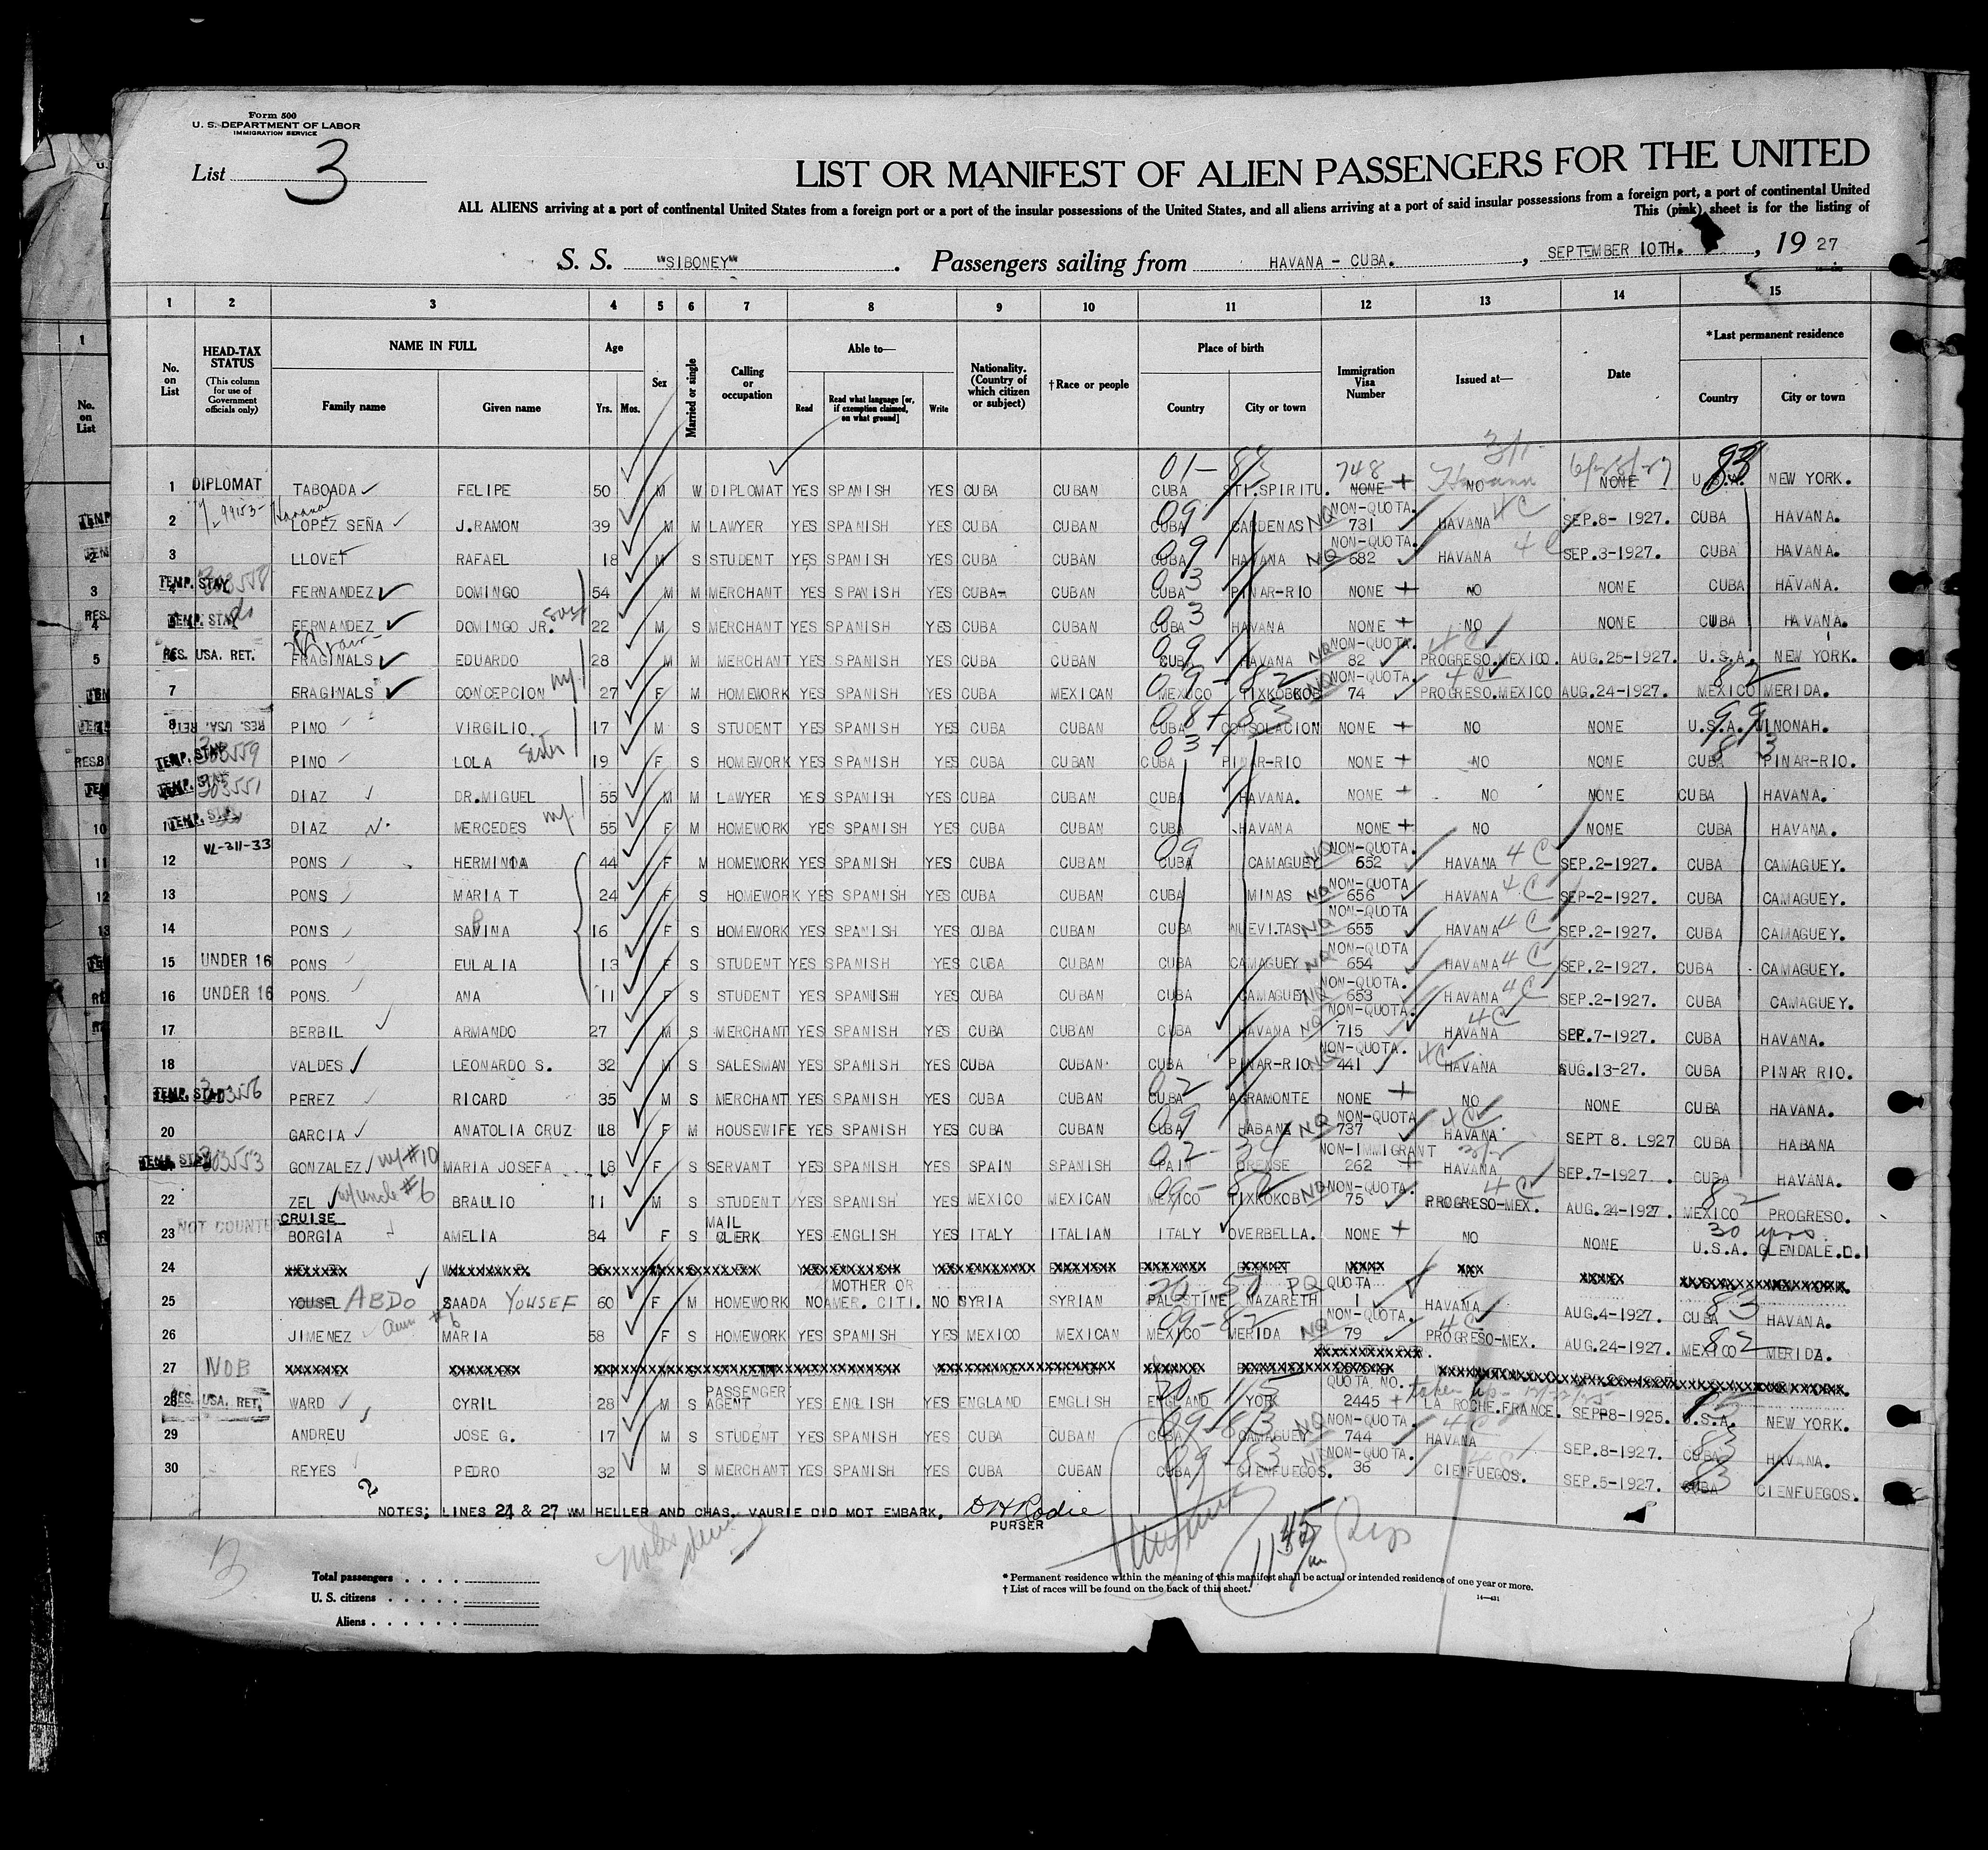 Form 500
U. S. DEPARTMENT OF LABOR
IMMIGRATION SERVICE
List 3
LIST OR MANIFEST OF ALIEN PASSENGERS FOR THE UNITED
ALL ALIENS arriving at a port of continental United States from a foreign port or a port of the insular possessions of the United States, and all aliens arriving at a port of said insular possessions from a foreign port, a port of continental United
This (pink) sheet is for the listing of
S. S. "SIBONEY" . Passengers sailing from HAVANA - CUBA. , SEPTEMBER 10TH. , 19 27
1 2 3 4 5 6 7 8 9 10 11 12 13 14 15
No. on List HEAD-TAX STATUS (This column for use of Government officials only) NAME IN FULL Family name Given name Age Yrs. Mos. Sex Married or single Calling or occupation Able to— Read Read what language [or, if exemption claimed, on what ground] Write Nationality. (Country of which citizen or subject) †Race or people Place of birth Country City or town Immigration Visa Number Issued at— Date *Last permanent residence Country City or town
1 DIPLOMAT TABOADA FELIPE 50 M W DIPLOMAT YES SPANISH YES CUBA CUBAN CUBA STI.SPIRITU. 748 NONE NO Havana NONE U.S.A. NEW YORK.
2 LOPEZ SEÑA J.RAMON 39 M M LAWYER YES SPANISH YES CUBA CUBAN CUBA CARDENAS NON-QUOTA. 731 HAVANA 4C SEP.8- 1927. CUBA HAVANA.
3 LLOVET RAFAEL 18 M S STUDENT YES SPANISH YES CUBA CUBAN CUBA HAVANA NON-QUOTA. 682 HAVANA 4C SEP.3-1927. CUBA HAVANA.
4 TEMP. STAY FERNANDEZ DOMINGO 54 M M MERCHANT YES SPANISH YES CUBA CUBAN CUBA PINAR-RIO NONE NO NONE CUBA HAVANA.
TEMP. STAY FERNANDEZ DOMINGO JR. 22 M S MERCHANT YES SPANISH YES CUBA CUBAN CUBA HAVANA NONE NO NONE CUBA HAVANA.
RES. USA. RET. FRAGINALS EDUARDO 28 M M MERCHANT YES SPANISH YES CUBA CUBAN CUBA HAVANA NON-QUOTA. 82 PROGRESO.MEXICO. AUG.25-1927. U.S.A. NEW YORK.
7 FRAGINALS CONCEPCION 27 F M HOMEWORK YES SPANISH YES CUBA MEXICAN MEXICO TIXKOBKOB NON-QUOTA. 74 PROGRESO.MEXICO AUG.24-1927. MEXICO MERIDA.
8 RES. USA. RET. PINO VIRGILIO. 17 M S STUDENT YES SPANISH YES CUBA CUBAN CUBA CONSOLACION NONE NO NONE U.S.A. WINONAH.
TEMP. STAY 303559 PINO LOLA Sister 19 F S HOMEWORK YES SPANISH YES CUBA CUBAN CUBA PINAR-RIO NONE NO NONE CUBA PINAR-RIO.
TEMP. STAY 303551 DIAZ DR.MIGUEL 55 M M LAWYER YES SPANISH YES CUBA CUBAN CUBA HAVANA. NONE NO NONE CUBA HAVANA.
TEMP. STAY DIAZ MERCEDES 55 F M HOMEWORK YES SPANISH YES CUBA CUBAN CUBA HAVANA NONE NO NONE CUBA HAVANA.
12 VL-311-33 PONS HERMINIA 44 F M HOMEWORK YES SPANISH YES CUBA CUBAN CUBA CAMAGUEY NON-QUOTA. 652 HAVANA 4C SEP.2-1927. CUBA CAMAGUEY.
13 PONS MARIA T 24 F S HOMEWORK YES SPANISH YES CUBA CUBAN CUBA MINAS NON-QUOTA 656 HAVANA 4C SEP-2-1927. CUBA CAMAGUEY.
14 PONS SABINA 16 F S HOMEWORK YES SPANISH YES CUBA CUBAN CUBA NUEVITAS NON-QUOTA 655 HAVANA 4C SEP.2-1927. CUBA CAMAGUEY.
15 UNDER 16 PONS EULALIA 13 F S STUDENT YES SPANISH YES CUBA CUBAN CUBA CAMAGUEY NON-QUOTA. 654 HAVANA 4C SEP.2-1927. CUBA CAMAGUEY.
16 UNDER 16 PONS. ANA 11 F S STUDENT YES SPANISH YES CUBA CUBAN CUBA CAMAGUEY NON-QUOTA. 653 HAVANA 4C SEP.2-1927. CUBA CAMAGUEY.
17 BERBIL ARMANDO 27 M S MERCHANT YES SPANISH YES CUBA CUBAN CUBA HAVANA NON-QUOTA. 715 HAVANA 4C SEP.7-1927. CUBA HAVANA.
18 VALDES LEONARDO S. 32 M S SALESMAN YES SPANISH YES CUBA CUBAN CUBA PINAR-RIO NON-QUOTA. 441 4C HAVANA AUG.13-27. CUBA PINAR RIO.
TEMP. STAY 303556 PEREZ RICARD 35 M S MERCHANT YES SPANISH YES CUBA CUBAN CUBA AGRAMONTE NONE NO NONE CUBA HAVANA.
20 GARCIA ANATOLIA CRUZ 18 F M HOUSEWIFE YES SPANISH YES CUBA CUBAN CUBA HABANA NON-QUOTA 737 HAVANA. 4C SEPT 8. L927 CUBA HABANA
TEMP. STAY 303553 GONZALEZ w/#10 MARIA JOSEFA 18 F S SERVANT YES SPANISH YES SPAIN SPANISH SPAIN ORENSE NON-IMMIGRANT 262 HAVANA SEP.7-1927. CUBA HAVANA.
22 ZEL w/uncle #6 BRAULIO 11 M S STUDENT YES SPANISH YES MEXICO MEXICAN MEXICO TIXKOKOB NON-QUOTA. 75 PROGRESO-MEX. 4C AUG.24-1927. MEXICO PROGRESO.
23 NOT COUNTE CRUISE BORGIA AMELIA 34 F S MAIL CLERK YES ENGLISH YES ITALY ITALIAN ITALY OVERBELLA. NONE NO NONE 30 yrs. U.S.A. GLENDALE.D.I
24
25 YOUSEL ABDO SAADA YOUSEF 60 F M HOMEWORK NO MOTHER OR AMER. CITI. NO SYRIA SYRIAN PALESTINE NAZARETH PQ QUOTA 1 HAVANA AUG.4-1927. CUBA HAVANA.
26 JIMENEZ Aunt #6 MARIA 58 F S HOMEWORK YES SPANISH YES MEXICO MEXICAN MEXICO MERIDA NON-QUOTA. 79 PROGRESO-MEX. 4C AUG.24-1927. MEXICO MERIDA.
27 NOB
28 RES. USA. RET. WARD CYRIL 28 M S PASSENGER AGENT YES ENGLISH YES ENGLAND ENGLISH ENGLAND YORK QUOTA NO. 2445 taken up LA ROCHE.FRANCE. SEP-8-1925. U.S.A. NEW YORK.
29 ANDREU JOSE G. 17 M S STUDENT YES SPANISH YES CUBA CUBAN CUBA CAMAGUEY NON-QUOTA. 744 HAVANA 4C SEP.8-1927. CUBA HAVANA.
30 REYES PEDRO 32 M S MERCHANT YES SPANISH YES CUBA CUBAN CUBA CIENFUEGOS. NON-QUOTA. 36 CIENFUEGOS. SEP.5-1927. CUBA CIENFUEGOS.
NOTES; LINES 24 & 27 WM HELLER AND CHAS. VAURIE DID MOT EMBARK. D H Rodie
PURSER
Total passengers
U. S. citizens
Aliens
* Permanent residence within the meaning of this manifest shall be actual or intended residence of one year or more.
† List of races will be found on the back of this sheet.
14—431